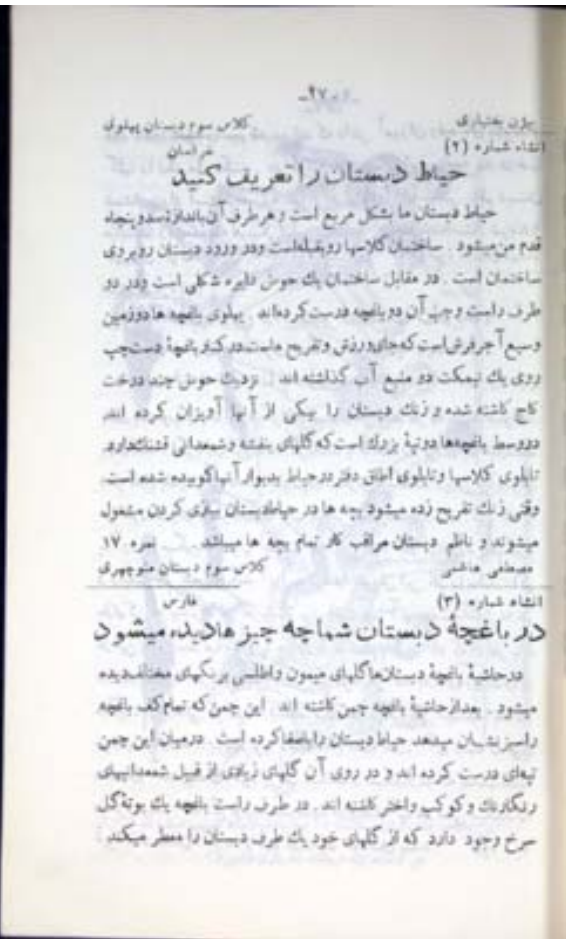 -۲۷-
بیژن بختیاری کلاس سوم دبستان پهلوی
انشاء شماره (۲) خراسان
حیاط دبستان را تعریف کنید
حیاط دبستان ما بشکل مربع است و هر طرف آن باندازهٔ سدوپنجاه
قدم من میشود . ساختمان کلاسها روبقبله‌است ودر ورود دبستان روبروی
ساختمان است . در مقابل ساختمان یك حوض دایره شکلی است ودر دو
طرف راست وچپ آن دوباغچه درست کرده‌اند . پهلوی باغچه ها دوزمین
وسیع آجرفرش است که جای ورزش و تفریح ماست در کنار باغچهٔ دست چپ
روی یك نیمکت دو منبع آب گذاشته اند . نزدیك حوض چند درخت
کاج کاشته شده و زنك دبستان را بیکی از آنها آویزان کرده اند
دروسط باغچه‌ها دوتپهٔ بزرك است که گلهای بنفشه وشمعدانی قشنگ‌دارد.
تابلوی کلاسها وتابلوی اطاق دفتر درحیاط بدیوار آنها کوبیده شده است.
وقتی زنك تفریح زده میشود بچه ها در حیاط‌دبستان ببازی کردن مشغول
میشوند و ناظم دبستان مراقب کار تمام بچه ها میباشد . نمره ۱۷
مصطفی هاشمی کلاس سوم دبستان منوچهری
انشاء شماره (۳) فارس
در باغچهٔ دبستان شما چه چیز ها دیده میشود
درحاشیهٔ باغچهٔ دبستان‌ما گلهای میمون واطلسی برنگهای مختلف‌دیده
میشود . بعداز حاشیهٔ باغچه چمن کاشته اند . این چمن که تمام کف باغچه
راسبز نشان میدهد حیاط دبستان را باصفا کرده است . درمیان این چمن
تپه‌ای درست کرده اند و در روی آن گلهای زیادی از قبیل شمعدانیهای
رنگارنك و کوکب واختر کاشته اند . در طرف راست باغچه یك بوتهٔ گل
سرخ وجود دارد که از گلهای خود یك طرف دبستان را معطر میکند .